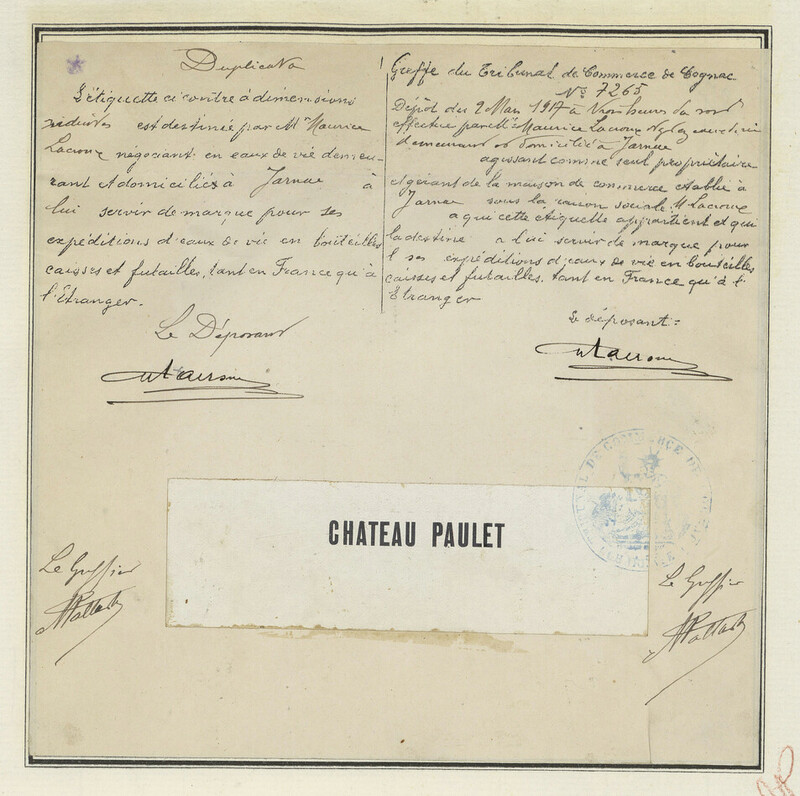 Duplicata
L'étiquette ci contre à dimensions
réduites est destinée par Mr Maurice
Lacroux négociant en eaux de vie demeu-
rant et domicilié à Jarnac à
lui servir de marque pour ses
expéditions d'eaux de vie en bouteilles
caisses et futailles, tant en France qu'à
l'Etranger.
Le Déposant
Greffe du Tribunal de Commerce de Cognac
No 7265
Dépôt du 2 Mai 1917 à heures du
effectué par Mr Maurice Lacroux
demeurant et domicilié à Jarnac
agissant comme seul propriétaire
et gérant de la maison de commerce établie à
Jarnac sous la raison sociale M Lacroux
a qui cette étiquette appartient et qui
la destine a lui servir de marque pour
ses expéditions d'eaux de vie en bouteilles
caisses et futailles, tant en France qu'à l'
Etranger
Le déposant =
TRIBUNAL DE COMMERCE DE COGNAC
CHATEAU PAULET
Le Greffier
Le Greffier